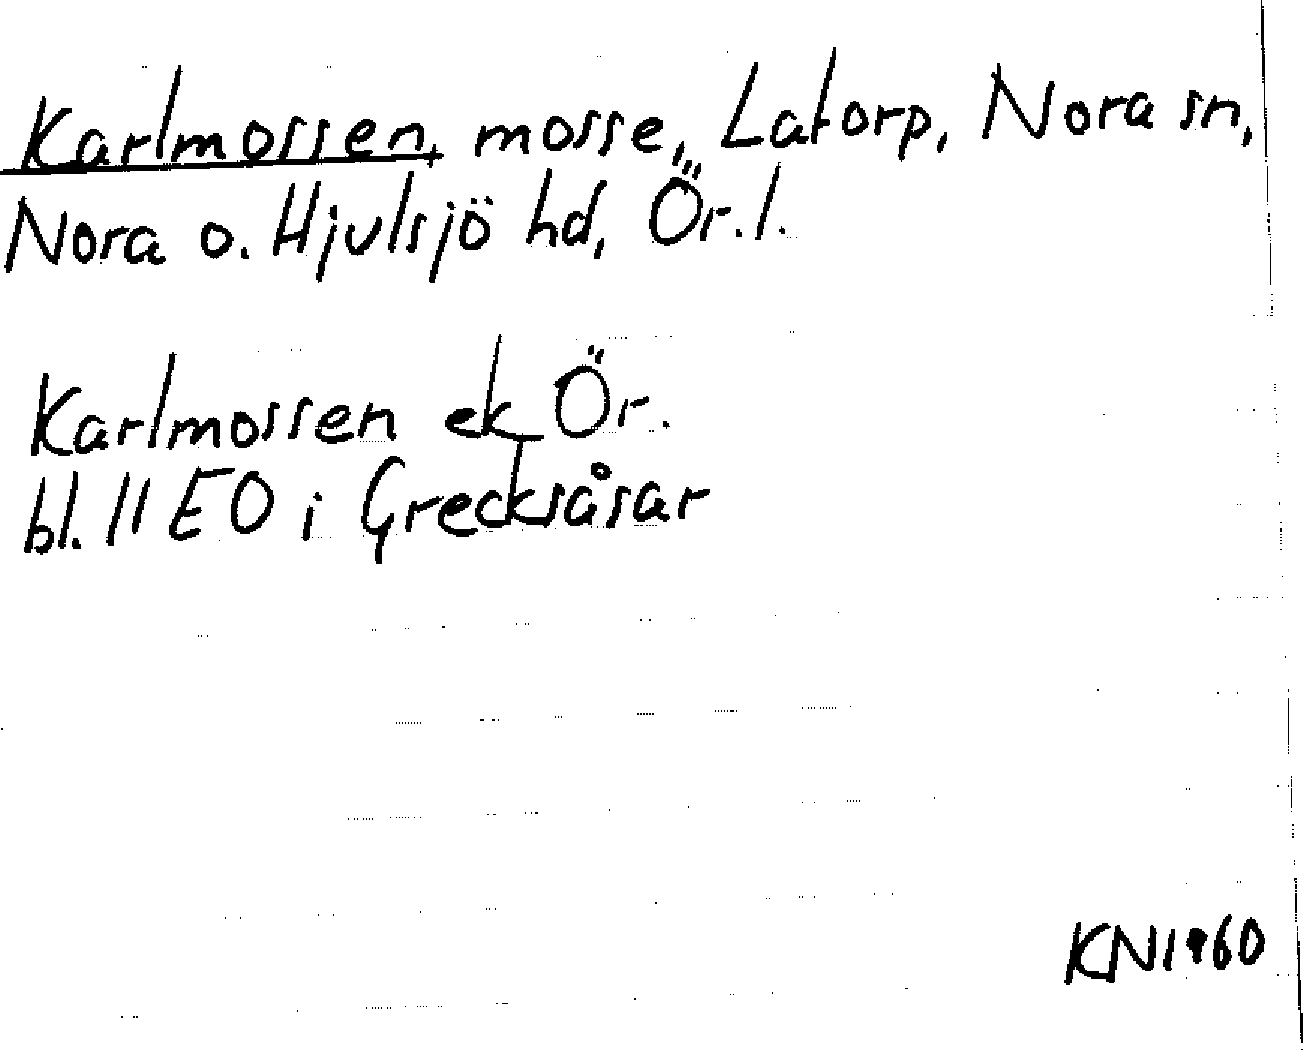 Karlmossen, mosse, Latorp, Nora sn,
Nora o. Hjulsjö hd, Ör. l.
Karlmossen ek Ör.
bl. 11 EO i Grecksåsar
KN 1960